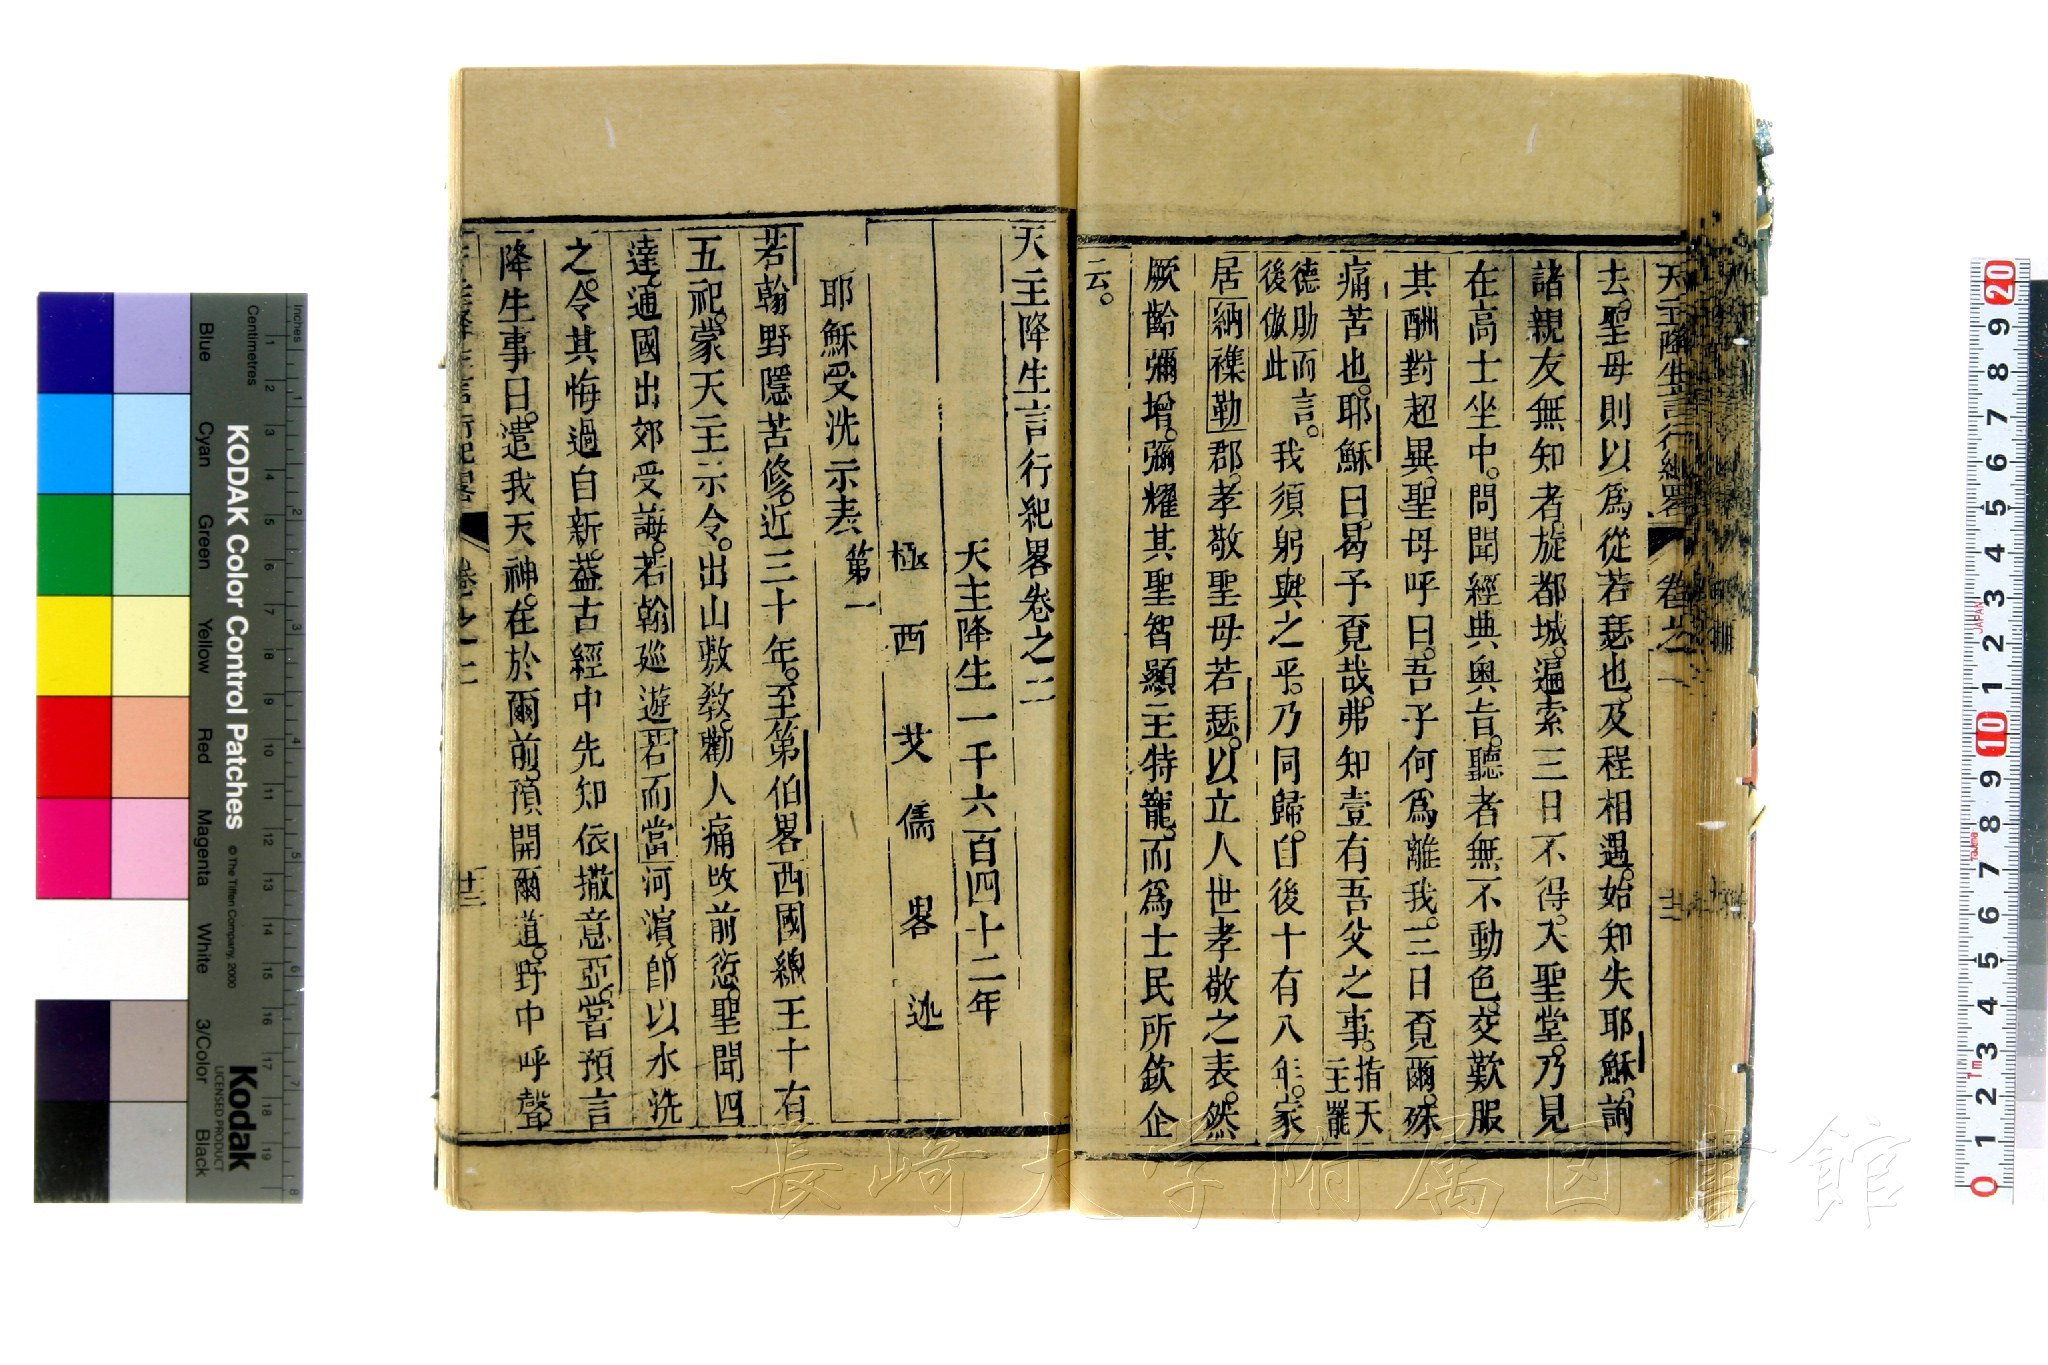 去。聖母則以爲從若瑟也。及程相遇。始知失耶穌。詢
諸親友無知者。旋都城。遍索三日不得。入聖堂。乃見
在高士坐中。問聞經典奥旨。聽者無不動色。交歎服
其酬對超異。聖母呼曰。吾子何爲離我。三日覓爾。殊
痛苦也。耶穌曰。曷予覓哉。弗知壹有吾父之事。指天主罷
德肋而言。後倣此我須躬與之乎。乃同歸。自後十有八年。家
居納襍勒郡。孝敬聖母若瑟。以立人世孝敬之表。然
厥齡彌增。彌耀其聖智顯主特寵。而爲士民所欽企
云。
天主降生言行紀畧卷之二
天主降生一千六百四十二年
極西艾儒畧述
耶穌受洗示表第一
若翰野隱苦修。近三十年。至第伯畧西國總王十有
五祀。蒙天主示令。出山敷教。勸人痛改前愆。聖聞四
達。通國出郊受誨。若翰廵遊若而當河濵。卽以水洗
之。令其悔過自新。葢古經中先知依撒意亞。嘗預言
降生事曰。遣我天神。在於爾前。預開爾道。野中呼聲
天主降生言行紀畧
卷之二
廿三
天主降生言行紀畧
卷之一
KODAK Color Control Patches
© The Tiffen Company, 2000
Kodak
LICENSED PRODUCT
Inches
Centimetres
Blue
Cyan
Green
Yellow
Red
Magenta
White
3/Color
Black
1 2 3 4 5 6 7 8
1 2 3 4 5 6 7 8 9 10 11 12 13 14 15 16 17 18 19
20 9 8 7 6 5 4 3 2 1 10 9 8 7 6 5 4 3 2 1 0
JAPAN
Tajima
1m
長崎大学附属図書館